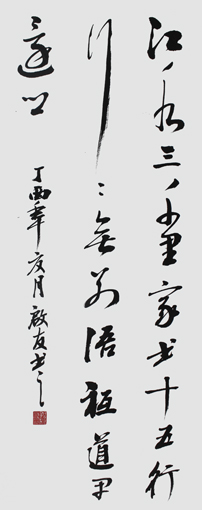 江水三千里家书十五行
行〻無别语祗道早
還乡
丁酉年夏月啟友书